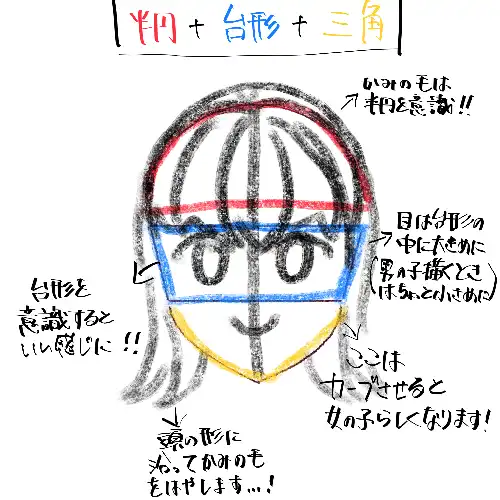 半円 + 台形 + 三角
かみの毛は
半円を意識!!
目は台形の
中に大きめに
(男の子描くとき
はちょっと小さめに)
台形を
意識すると
いい感じに!!
ここは
カーブさせると
女の子らしくなります!
頭の形に
沿ってかみのもを
をはやします...!